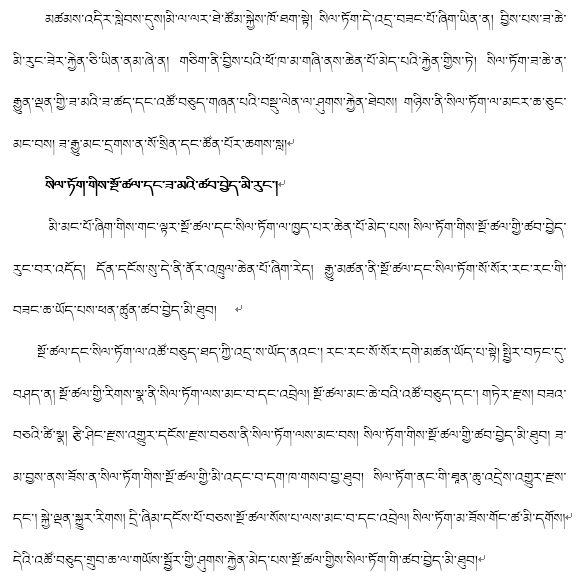 མཚམས་འདིར་སླེབས་དུས།མི་ལ་ལར་ཐེ་ཚོམ་སྐྱེས་ཁོ་ཐག་སྟེ། སིལ་ཏོག་དེ་འདྲ་བཟང་པོ་ཞིག་ཡིན་ན། བྱིས་པས་ཟ་ཆེ་
མི་རུང་ཟེར་རྐྱེན་ཅི་ཡིན་ནམ་ཞེ་ན། གཅིག་ནི་བྱིས་པའི་ཕོ་ཁ་མ་གཞི་ནས་ཆེན་པོ་མེད་པའི་རྐྱེན་གྱིས་ཏེ། སིལ་ཏོག་ཟ་ཆེ་ན་
རྒྱུན་ལྡན་གྱི་ཟ་མའི་ཟ་ཚད་དང་འཚོ་བཅུད་གཞན་པའི་བསྡུ་ལེན་ལ་ཤུགས་རྐྱེན་ཐེབས། གཉིས་ནི་སིལ་ཏོག་ལ་མངར་ཆ་ཅུང་
མང་བས། ཟ་རྒྱུ་མང་དྲགས་ན་སོ་སྲིན་དང་ཚོན་པོར་ཆགས་སླ།
སིལ་ཏོག་གིས་སྔོ་ཚལ་དང་ཟ་མའི་ཚབ་བྱེད་མི་རུང་།
མི་མང་པོ་ཞིག་གིས་གང་ལྟར་སྔོ་ཚལ་དང་སིལ་ཏོག་ལ་ཁྱད་པར་ཆེན་པོ་མེད་པས། སིལ་ཏོག་གིས་སྔོ་ཚལ་གྱི་ཚབ་བྱེད་
རུང་བར་འདོད། དོན་དངོས་སུ་དེ་ནི་ནོར་འཁྲུལ་ཆེན་པོ་ཞིག་རེད། རྒྱུ་མཚན་ནི་སྔོ་ཚལ་དང་སིལ་ཏོག་སོ་སོར་རང་རང་གི་
བཟང་ཆ་ཡོད་པས་ཕན་ཚུན་ཚབ་བྱེད་མི་ཐུབ།
སྔོ་ཚལ་དང་སིལ་ཏོག་ལ་འཚོ་བཅུད་ཐད་ཀྱི་འདྲ་ས་ཡོད་ནའང་། རང་རང་སོ་སོར་དགེ་མཚན་ཡོད་པ་སྟེ། སྤྱིར་བཏང་དུ་
བཤད་ན། སྔོ་ཚལ་གྱི་རིགས་སྣ་ནི་སིལ་ཏོག་ལས་མང་བ་དང་འབྲེལ། སྔོ་ཚལ་མང་ཆེ་བའི་འཚོ་བཅུད་དང་། གཏེར་རྫས། བཟའ་
བཅའི་ཚི་སྣ། རྩི་ཤིང་རྫས་འགྱུར་དངོས་རྫས་བཅས་ནི་སིལ་ཏོག་ལས་མང་བས། སིལ་ཏོག་གིས་སྔོ་ཚལ་གྱི་ཚབ་བྱེད་མི་ཐུབ། ཟ་
མ་བྱས་ནས་ཟོས་ན་སིལ་ཏོག་གིས་སྔོ་ཚལ་གྱི་མི་འདང་བ་དག་ཁ་གསབ་བྱ་ཐུབ། སིལ་ཏོག་ནང་གི་ཐཱན་ཆུ་འདྲེས་འགྱུར་རྫས་
དང་། སྐྱེ་ལྡན་སྐྱུར་རིགས། དྲི་ཞིམ་དངོས་པོ་བཅས་སྔོ་ཚལ་སོས་པ་ལས་མང་བ་དང་འབྲེལ། སིལ་ཏོག་མ་ཟོས་གོང་ཚ་མི་དགོས།
དེའི་འཚོ་བཅུད་གྲུབ་ཆ་ལ་གཡོས་སྦྱོར་གྱི་ཤུགས་རྐྱེན་མེད་པས་སྔོ་ཚལ་གྱིས་སིལ་ཏོག་གི་ཚབ་བྱེད་མི་ཐུབ།